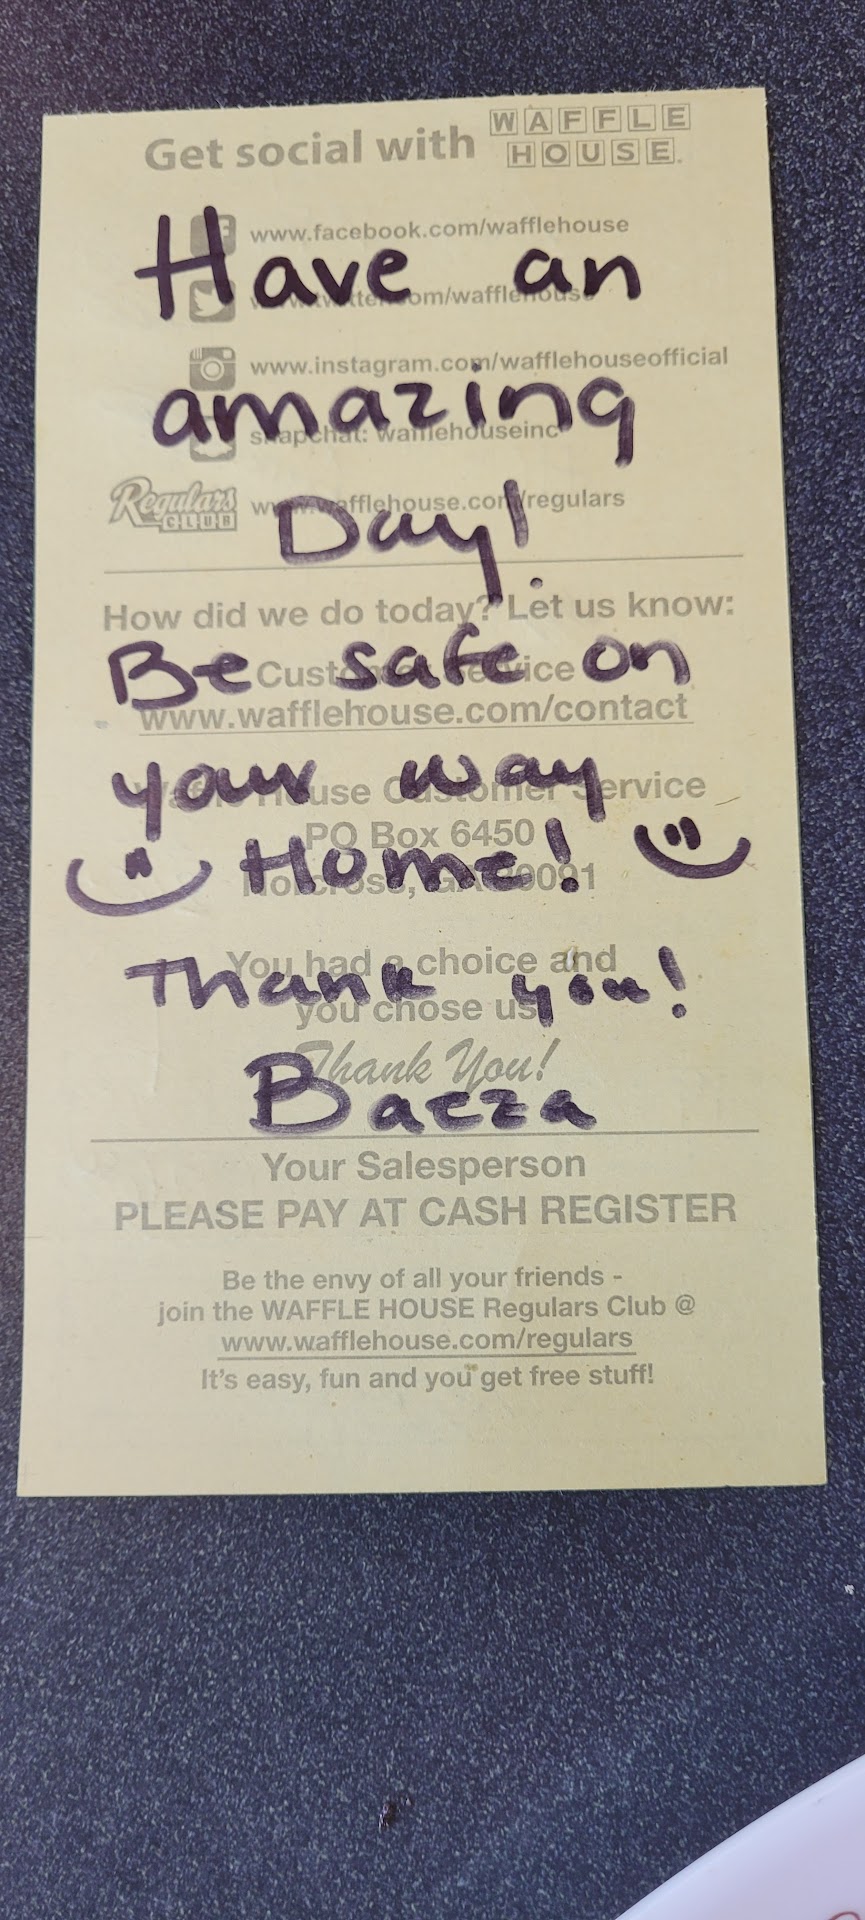 Get social with WAFFLE HOUSE
www.facebook.com/wafflehouse
Have an
www.twitter.com/wafflehouse
www.instagram.com/wafflehouseofficial
amazing
snapchat: wafflehouseinc
Regulars CLUB www.wafflehouse.com/regulars
Day!
How did we do today? Let us know:
Be safe on
Customer Service
www.wafflehouse.com/contact
your way
Waffle House Customer Service
PO Box 6450
Home!
Norcross, GA 30091
You had a choice and
Thank you!
you chose us
Thank You!
Baeza
Your Salesperson
PLEASE PAY AT CASH REGISTER
Be the envy of all your friends -
join the WAFFLE HOUSE Regulars Club @
www.wafflehouse.com/regulars
It's easy, fun and you get free stuff!